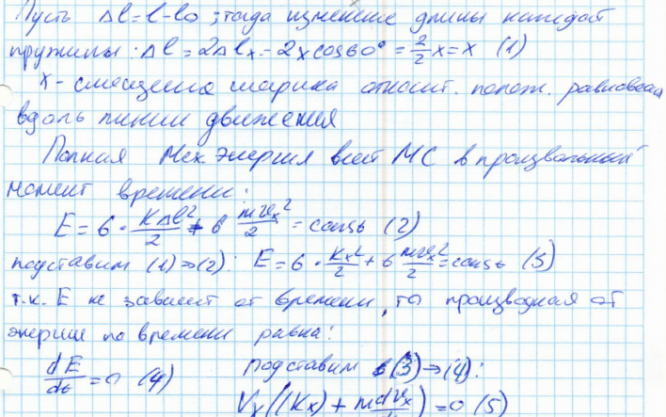 Пусть Δl = l - l₀; тогда изменение длины каждой
пружины: Δl = 2Δlₓ = 2x cos60° = 2/2 x = x (1)
x - смещение шарика относит. полож. равновесия
вдоль линии движения
Полная мех энергия всей МС в произвольный
момент времени:
E = 6 · kΔl²/2 + 6 mvₓ²/2 = const (2)
подставим (1)→(2): E = 6 · kx²/2 + 6 mvₓ²/2 = const (3)
т.к. E не зависит от времени, то производная от
энергии по времени равна:
dE/dt = 0 (4) подставим (3)→(4):
Vₓ((kx) + mdvₓ/) = 0 (5)